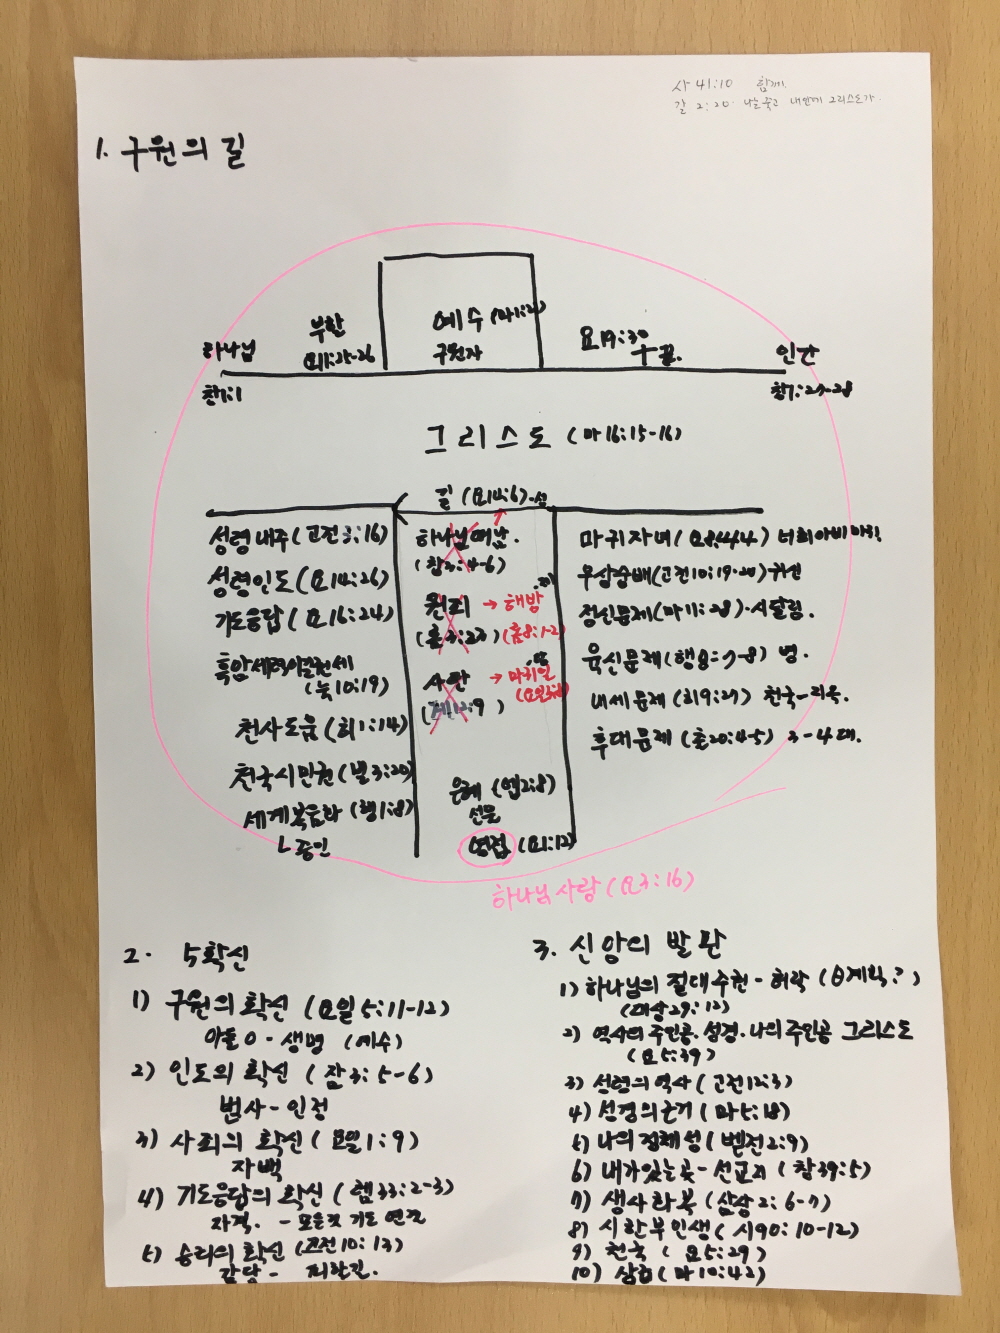 사 41:10 함께
갈 2:20 나는 죽고 내안에 그리스도가.
1. 구원의 길
하나님
창1:1
부활
요11:25-26
예수 (마1:21)
구원자
요19:30
끝.
인간
창1:27-28
그리스도 (마16:15-16)
길 (요14:6)
성령내주 (고전3:16)
성령인도 (요14:26)
기도응답 (요16:24)
흑암세력이길권세
(눅10:19)
천사도움 (히1:14)
천국시민권 (빌3:20)
세계복음화 (행1:8)
ㄴ증인
하나님떠남.
(창3:4-6)
원죄 → 해방
(롬3:23) (롬8:1-2)
사탄 → 마귀일
(계12:9) (요일3:8)
은혜 (엡2:8)
선물
영접 (요1:12)
마귀자녀 (요8:44) 너희아비마귀
우상숭배 (고전10:19-20) 귀신
정신문제 (마11:28)·시달림.
육신문제 (행8:7-8) 병.
내세문제 (히9:27) 천국-지옥.
후대문제 (출20:4-5) 3-4대.
하나님사랑 (요3:16)
2. 5확신
1) 구원의 확신 (요일5:11-12)
아들 O - 생명 (예수)
2) 인도의 확신 (잠3:5-6)
범사-인정
3) 사죄의 확신 (요일1:9)
자백
4) 기도응답의 확신 (렘33:2-3)
자격. - 모든것 기도 연결
5) 승리의 확신 (고전10:13)
감당- 피할길.
3. 신앙의 발판
1) 하나님의 절대주권 - 허락 (계획?)
(대상29:12)
2) 역사의 주인공·성경·나의 주인공 그리스도
(요5:39)
3) 성령의 역사 (고전12:3)
4) 성경의 근거 (마5:18)
5) 나의 정체성 (벧전2:9)
6) 내가있는곳-선교지 (창39:5)
7) 생사화복 (삼상2:6-7)
8) 시한부인생 (시90:10-12)
9) 천국 (요5:29)
10) 상급 (마10:42)